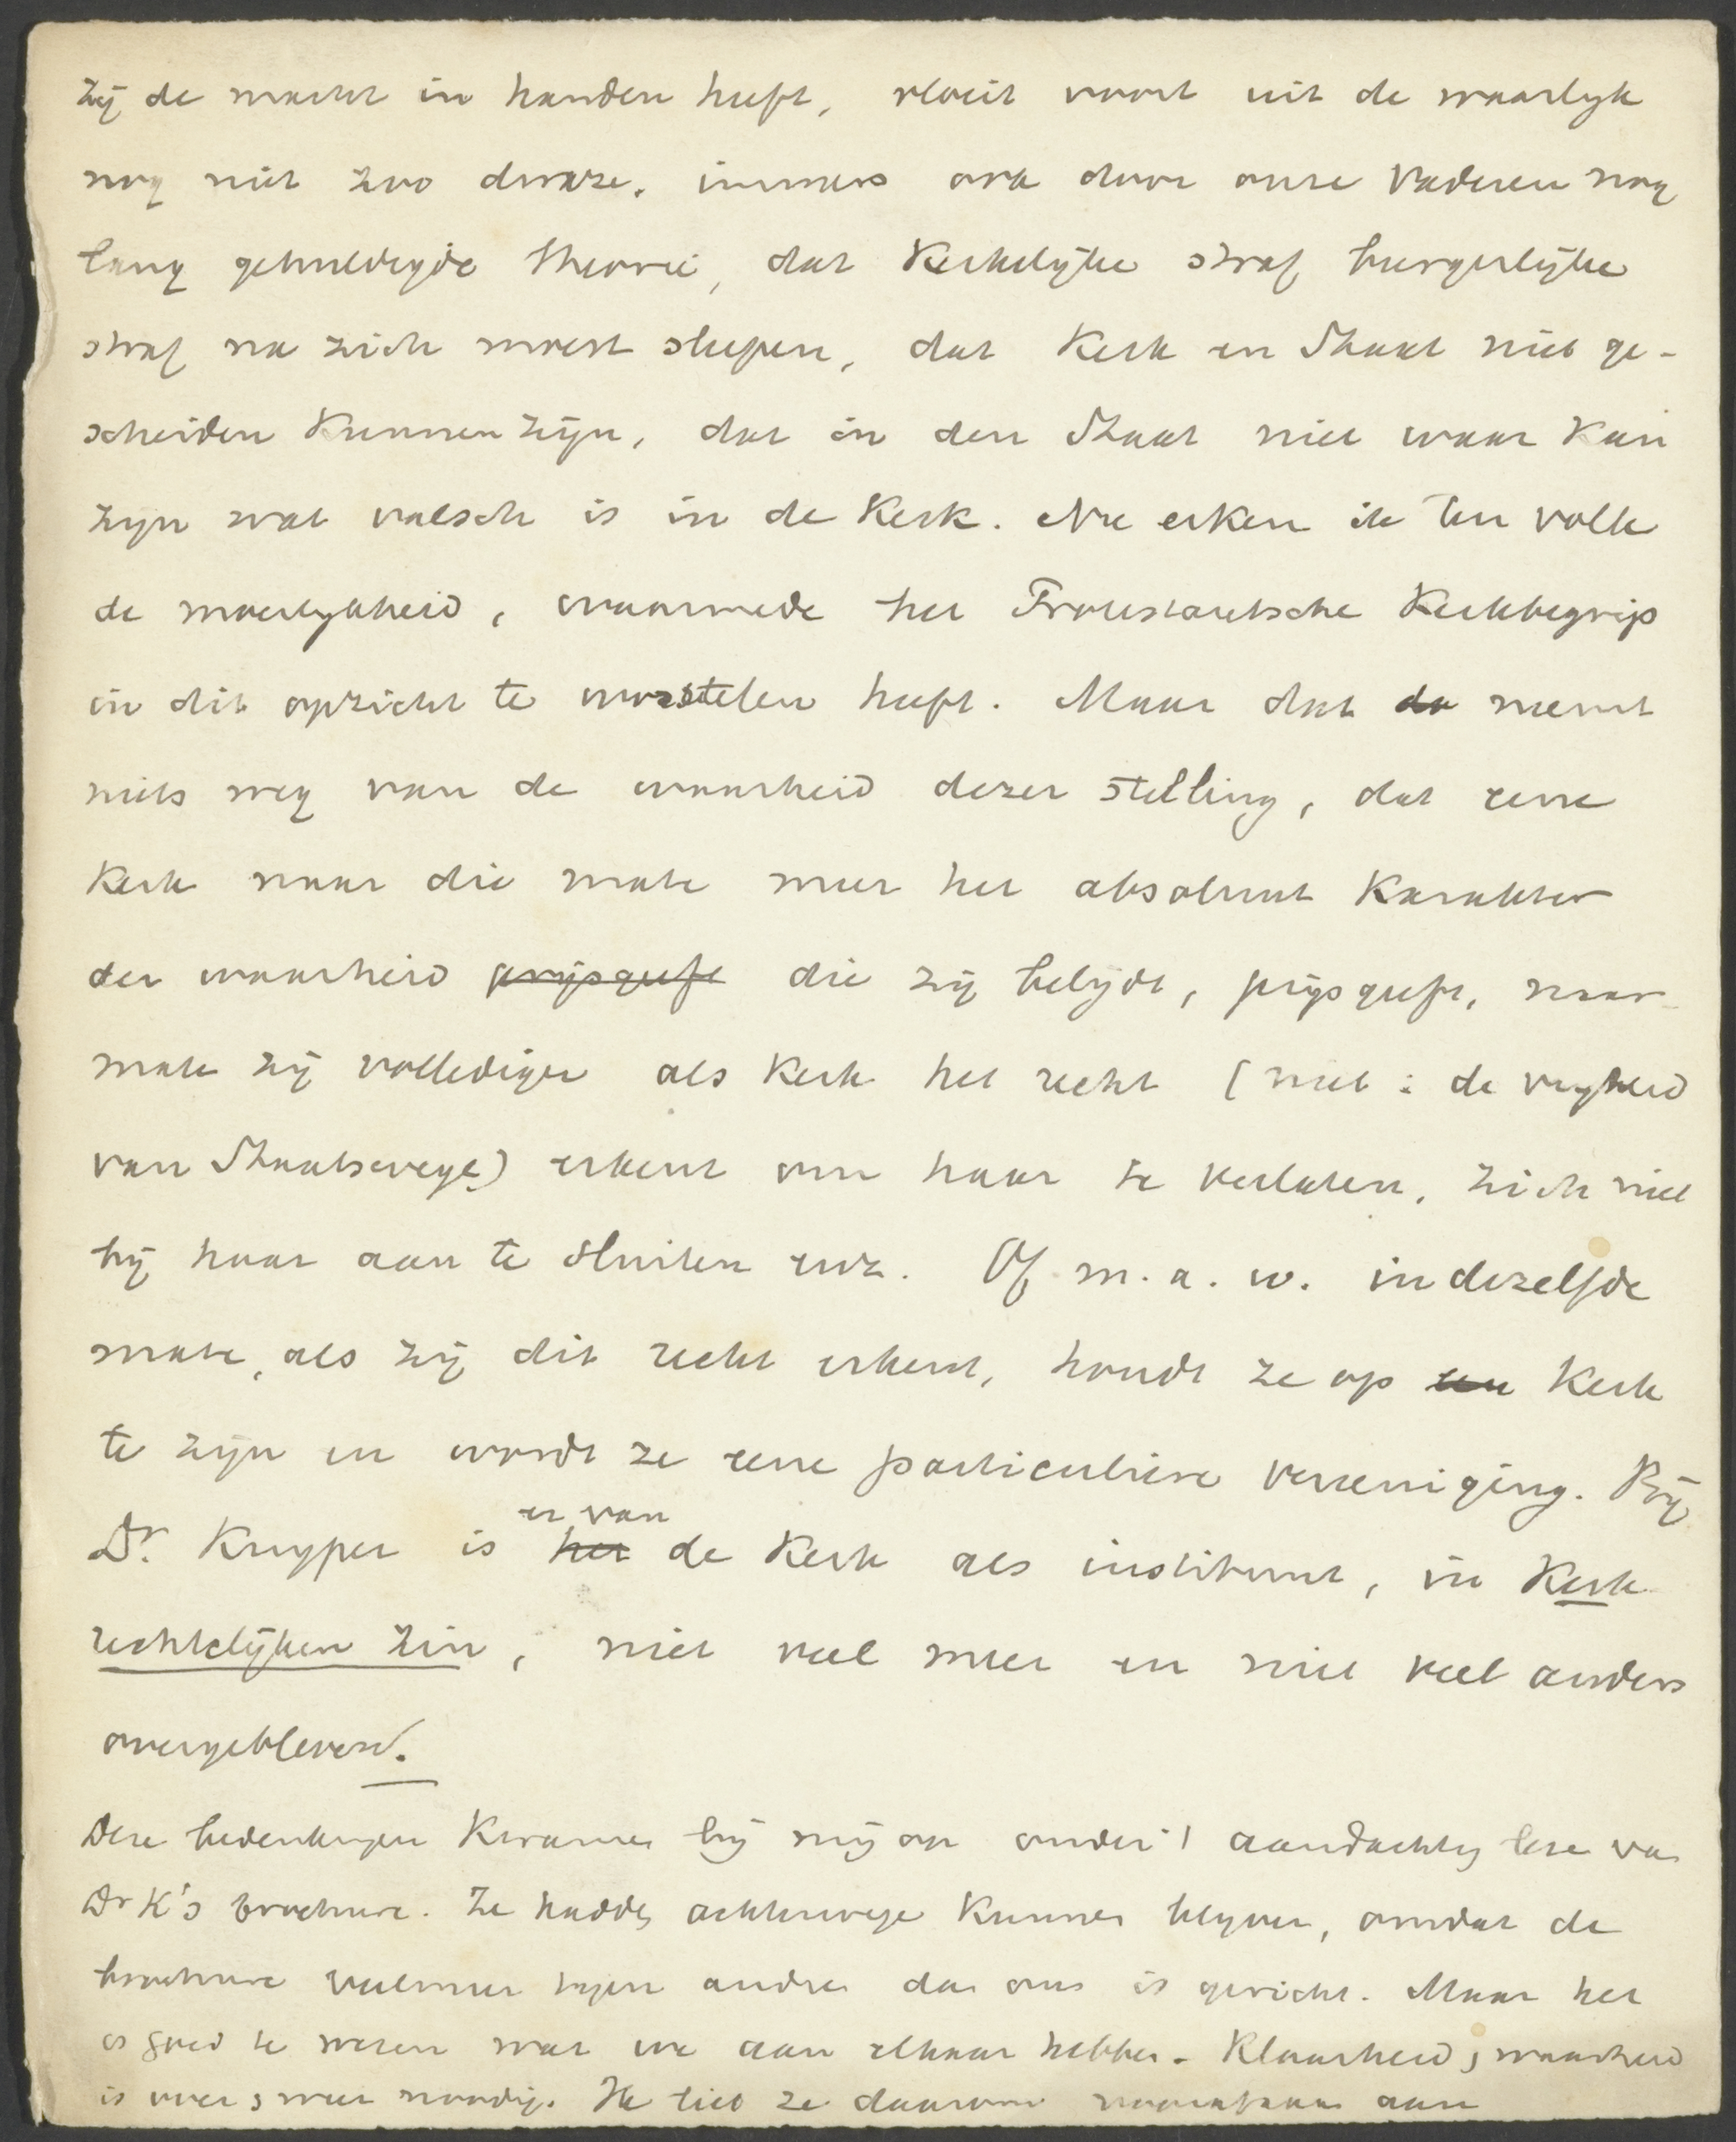 zij de macht in handen heeft, vloeit voort uit de waarlijk
nog niet zoo dwaze, immers ook door onze vaderen nog
lang gehuldigde theorie, dat Kerkelijke straf burgerlijke
straf na zich moest slepen, dat Kerk en Staat niet ge-
scheiden Kunnen zijn, dat in den Staat niet waar Kan
zijn wat valsch is in de Kerk. Nu erken ik ten volle
de moeilykheid, waarmede het Protestantsche Kerkbegrip
in dit opzicht te worstelen heeft. Maar dat da neemt
niets weg van de waarheid dezer stelling, dat eene
Kerk naar die mate meer het absoluut Karakter
der waarheid prijsgeeft die zij belijdt, prijsgeeft, naar
mate zij vollediger als Kerk het recht (niet: de vryheid
van Staatswege) erkent om haar te verlaten, zich niet
bij haar aan te sluiten enz. Of m.a.w. in dezelfde
mate, als zij dit recht erkent, houdt ze op een Kerk
te zijn en wordt ze eene particuliere vereeniging. Bij
er van
Dr. Kuyper is het de Kerk als instituut, in Kerk
rechtelijken zin, niet veel meer en niet veel anders
overgebleven.
Deze bedenkingen Kwamen bij mij op onder 't aandachtig leze van
Dr K's brochure. Ze hadden achterwege Kunnen blijven, omdat de
brochure veelmeer tegen andren dan ons is gericht. Maar het
is goed te weten wat we aan elkaar hebben. Klaarheid, waarheid
is over en weer noodig. Ik bied ze daarom aan